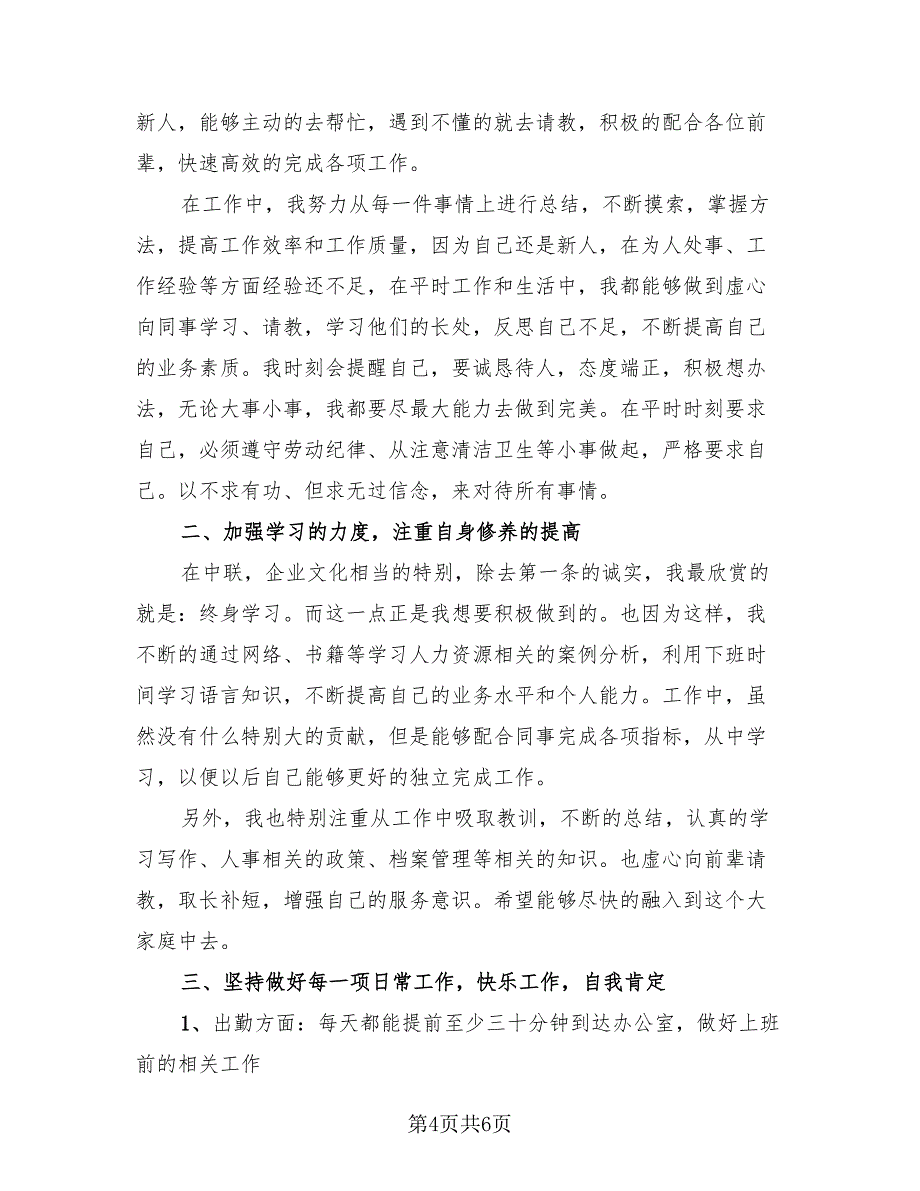 新人，能够主动的去帮忙，遇到不懂的就去请教，积极的配合各位前
辈，快速高效的完成各项工作。
在工作中，我努力从每一件事情上进行总结，不断摸索，掌握方
法，提高工作效率和工作质量，因为自己还是新人，在为人处事、工
作经验等方面经验还不足，在平时工作和生活中，我都能够做到虚心
向同事学习、请教，学习他们的长处，反思自己不足，不断提高自己
的业务素质。我时刻会提醒自己，要诚恳待人，态度端正，积极想办
法，无论大事小事，我都要尽最大能力去做到完美。在平时时刻要求
自己，必须遵守劳动纪律、从注意清洁卫生等小事做起，严格要求自
己。以不求有功、但求无过信念，来对待所有事情。
二、加强学习的力度，注重自身修养的提高
在中联，企业文化相当的特别，除去第一条的诚实，我最欣赏的
就是：终身学习。而这一点正是我想要积极做到的。也因为这样，我
不断的通过网络、书籍等学习人力资源相关的案例分析，利用下班时
间学习语言知识，不断提高自己的业务水平和个人能力。工作中，虽
然没有什么特别大的贡献，但是能够配合同事完成各项指标，从中学
习，以便以后自己能够更好的独立完成工作。
另外，我也特别注重从工作中吸取教训，不断的总结，认真的学
习写作、人事相关的政策、档案管理等相关的知识。也虚心向前辈请
教，取长补短，增强自己的服务意识。希望能够尽快的融入到这个大
家庭中去。
三、坚持做好每一项日常工作，快乐工作，自我肯定
1、出勤方面：每天都能提前至少三十分钟到达办公室，做好上班
前的相关工作
第4页共6页